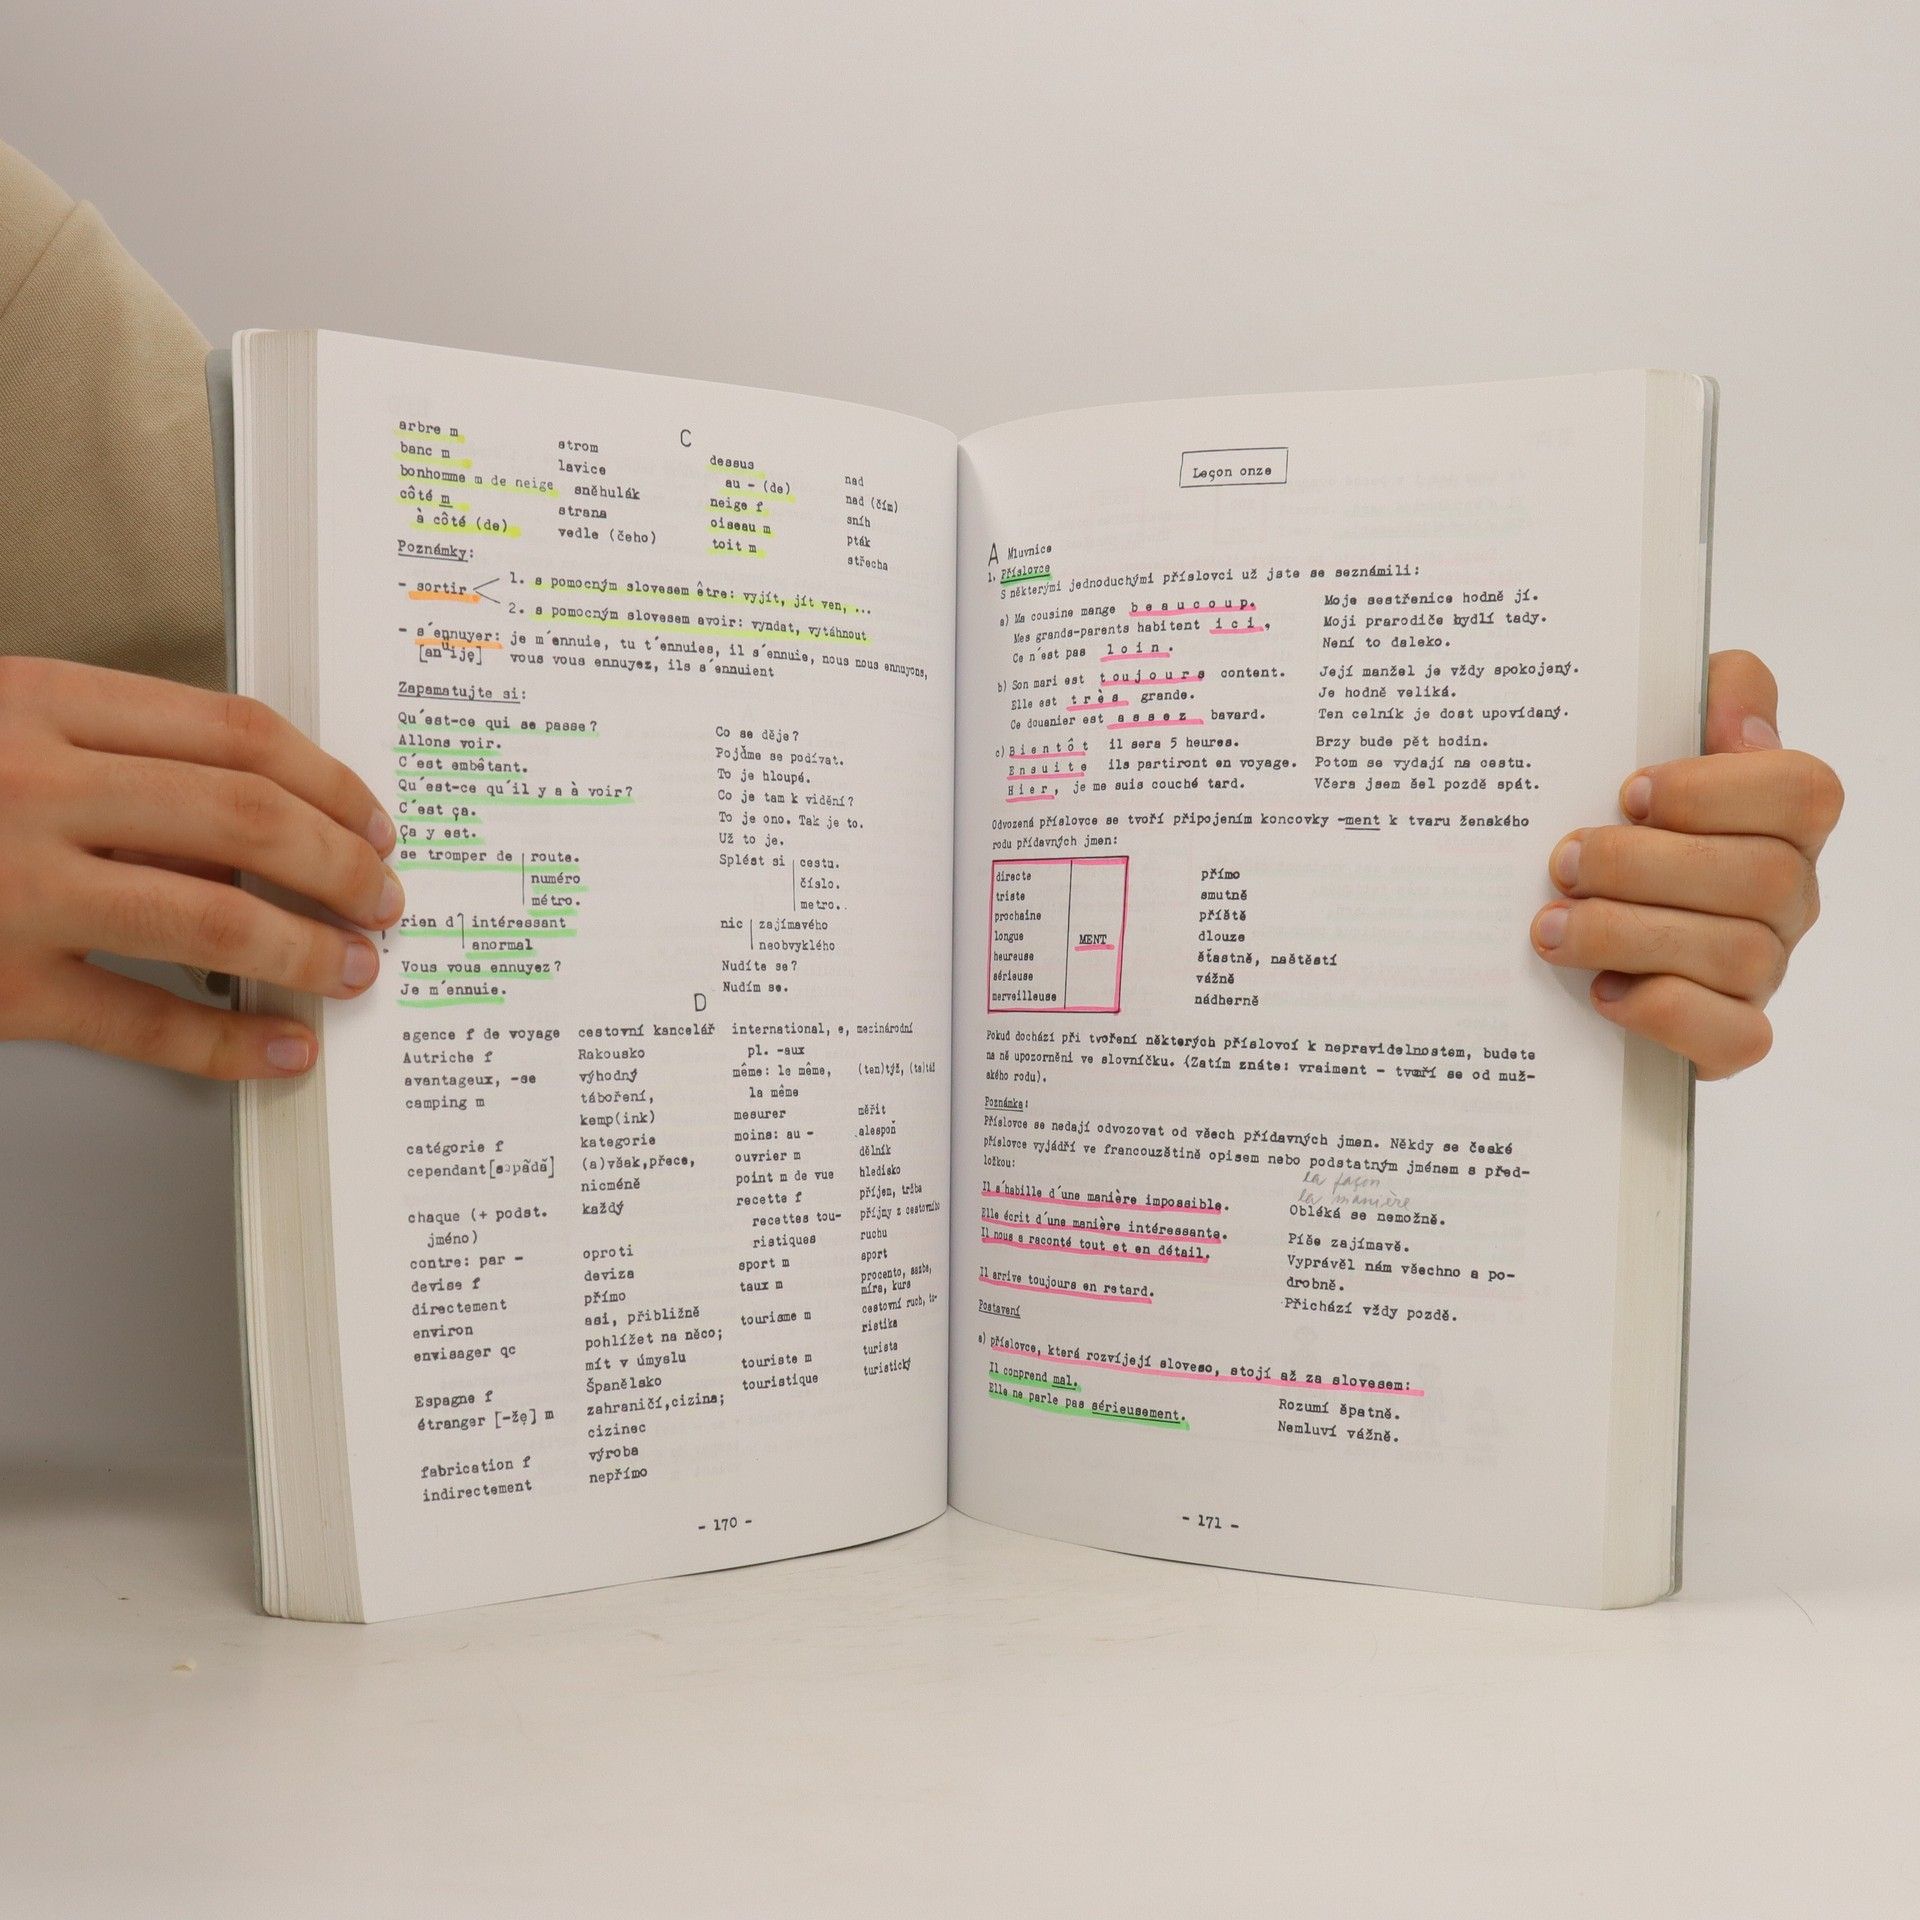 C
arbre m strom
banc m lavice
bonhomme m de neige sněhulák
côté m strana
à côté (de) vedle (čeho)
dessus nad
au - (de) nad (čím)
neige f sníh
oiseau m pták
toit m střecha
Poznámky:
- sortir 1. s pomocným slovesem être: vyjít, jít ven, ...
2. s pomocným slovesem avoir: vyndat, vytáhnout
- s´ennuyer: je m´ennuie, tu t´ennuies, il s´ennuie, nous nous ennuyons,
vous vous ennuyez, ils s´ennuient
Zapamatujte si:
Qu´est-ce qui se passe? Co se děje?
Allons voir. Pojďme se podívat.
C´est embêtant. To je hloupé.
Qu´est-ce qu´il y a à voir? Co je tam k vidění?
C´est ça. To je ono. Tak je to.
Ça y est. Už to je.
se tromper de route. Splést si cestu.
numéro číslo.
métro. metro.
rien d´ intéressant nic zajímavého
anormal neobvyklého
Vous vous ennuyez? Nudíte se?
Je m´ennuie. Nudím se.
D
agence f de voyage cestovní kancelář
Autriche f Rakousko
avantageux, -se výhodný
camping m táboření,
kemp(ink)
catégorie f kategorie
cependant[səpãdã] (a)však,přece,
nicméně
chaque (+ podst. každý
jméno)
contre: par - oproti
devise f deviza
directement přímo
environ asi, přibližně
envisager qc pohlížet na něco;
mít v úmyslu
Espagne f Španělsko
étranger [-žę] m zahraničí,cizina;
cizinec
fabrication f výroba
indirectement nepřímo
international, e, mezinárodní
pl. -aux
même: le même, (ten)týž, (ta)táž
la même
mesurer měřit
moins: au - alespoň
ouvrier m dělník
point m de vue hledisko
recette f příjem, tržba
recettes tou- příjmy z cestovního
ristiques ruchu
sport m sport
taux m procento, sazba,
míra, kurs
tourisme m cestovní ruch, tu-
ristika
touriste m turista
touristique turistický
- 170 -
Leçon onze
A Mluvnice
1. Příslovce
S některými jednoduchými příslovci už jste se seznámili:
a) Ma cousine mange beaucoup. Moje sestřenice hodně jí.
Mes grands-parents habitent ici, Moji prarodiče bydlí tady.
Ce n´est pas loin. Není to daleko.
b) Son mari est toujours content. Její manžel je vždy spokojený.
Elle est très grande. Je hodně veliká.
Ce douanier est assez bavard. Ten celník je dost upovídaný.
c) Bientôt il sera 5 heures. Brzy bude pět hodin.
Ensuite ils partiront en voyage. Potom se vydají na cestu.
Hier, je me suis couché tard. Včera jsem šel pozdě spát.
Odvozená příslovce se tvoří připojením koncovky -ment k tvaru ženského
rodu přídavných jmen:
directe přímo
triste smutně
prochaine příště
longue MENT dlouze
heureuse šťastně, naštěstí
sérieuse vážně
merveilleuse nádherně
Pokud dochází při tvoření některých příslovcí k nepravidelnostem, budete
na ně upozorněni ve slovníčku. (Zatím znáte: vraiment - tvoří se od muž-
ského rodu).
Poznámka:
Příslovce se nedají odvozovat od všech přídavných jmen. Někdy se české
příslovce vyjádří ve francouzštině opisem nebo podstatným jménem s před-
ložkou:
la façon
la manière
Il s´habille d´une manière impossible. Obléká se nemožně.
Elle écrit d´une manière intéressante. Píše zajímavě.
Il nous a raconté tout et en détail. Vyprávěl nám všechno a po-
drobně.
Il arrive toujours en retard. Přichází vždy pozdě.
Postavení
a) příslovce, která rozvíjejí sloveso, stojí až za slovesem:
Il comprend mal. Rozumí špatně.
Elle ne parle pas sérieusement. Nemluví vážně.
- 171 -